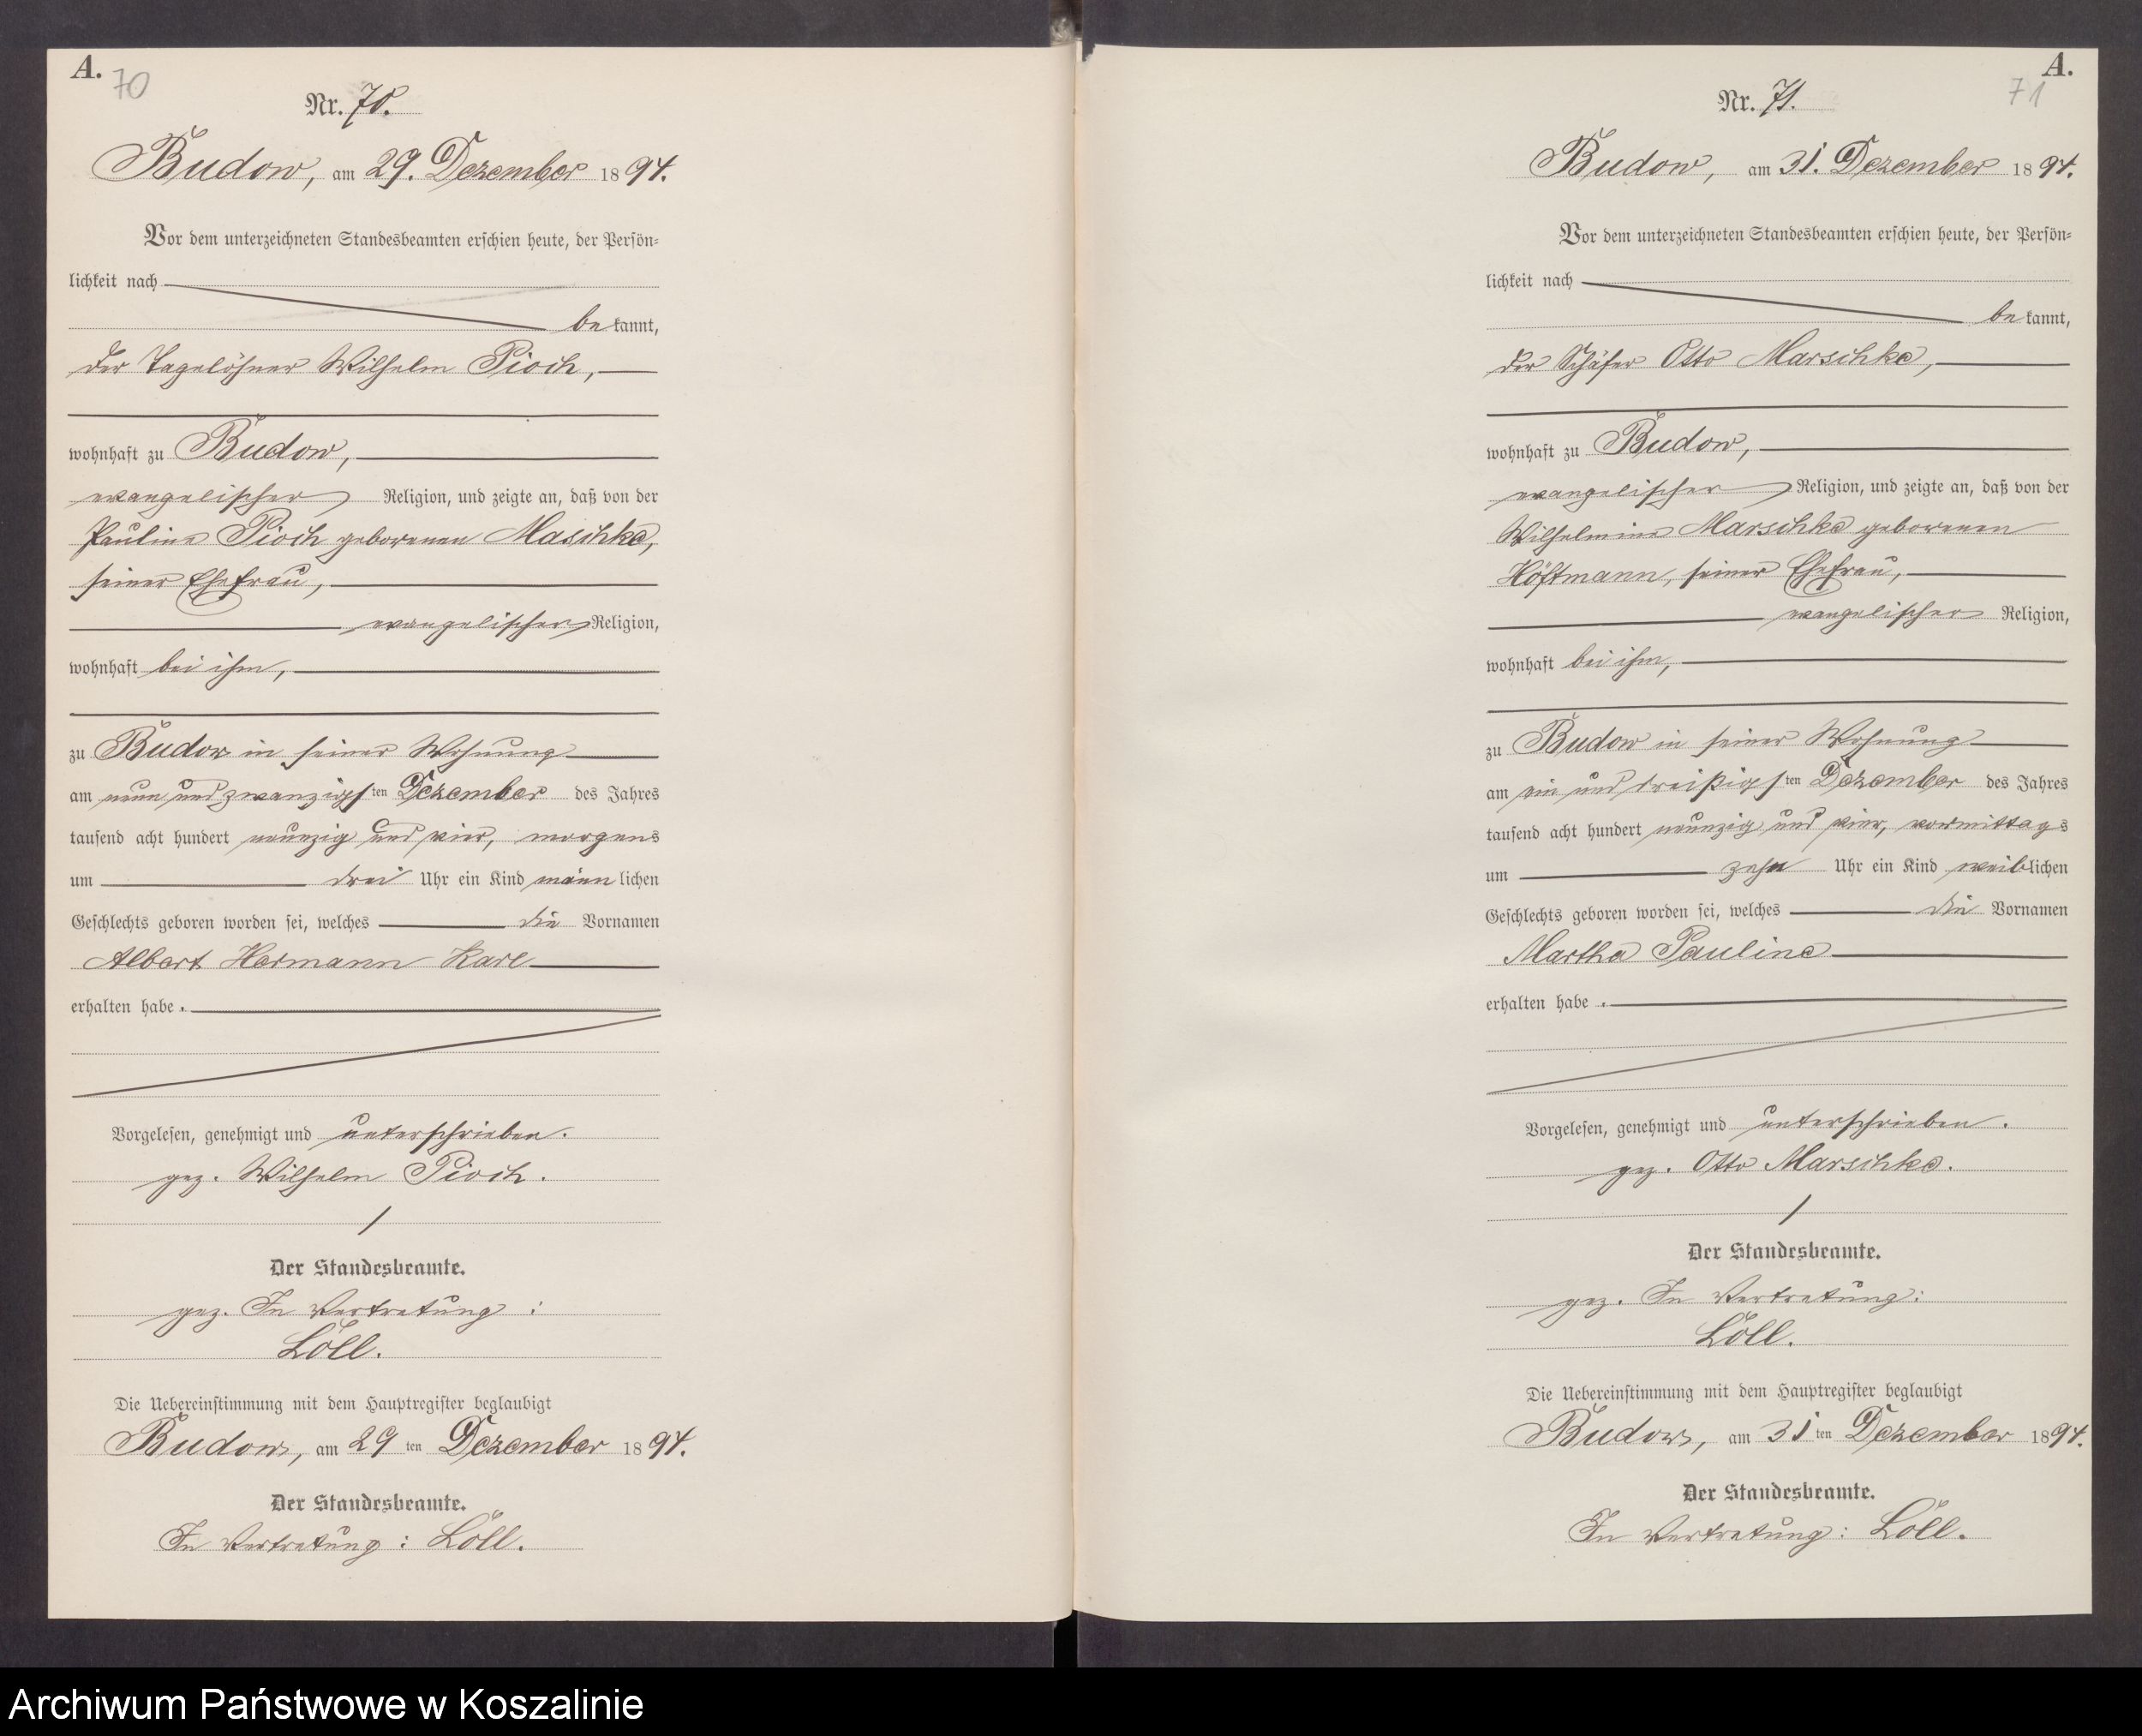 A.
70
Nr. 70.
Budow, am 29. Dezember 1894.
Vor dem unterzeichneten Standesbeamten erschien heute, der Persön-
lichkeit nach
bekannt,
der Tagelöhner Wilhelm Pioch,
wohnhaft zu Budow,
evangelischer Religion, und zeigte an, daß von der
Pauline Pioch geborenen Maschke,
seiner Ehefrau,
evangelischer Religion,
wohnhaft bei ihm,
zu Budow in seiner Wohnung
am neun und zwanzigsten Dezember des Jahres
tausend acht hundert neunzig und vier, morgens
um drei Uhr ein Kind männlichen
Geschlechts geboren worden sei, welches die Vornamen
Albert Hermann Karl
erhalten habe.
Vorgelesen, genehmigt und unterschrieben.
gez. Wilhelm Pioch.
Der Standesbeamte.
gez. In Vertretung:
Löll.
Die Uebereinstimmung mit dem Hauptregister beglaubigt
Budow, am 29 ten Dezember 1894.
Der Standesbeamte.
In Vertretung: Löll.
A.
71
Nr. 71.
Budow, am 31. Dezember 1894.
Vor dem unterzeichneten Standesbeamten erschien heute, der Persön-
lichkeit nach
bekannt,
der Schäfer Otto Marschke,
wohnhaft zu Budow,
evangelischer Religion, und zeigte an, daß von der
Wilhelmine Marschke geborenen
Höftmann, seiner Ehefrau,
evangelischer Religion,
wohnhaft bei ihm,
zu Budow in seiner Wohnung
am ein und dreißigsten Dezember des Jahres
tausend acht hundert neunzig und vier, vormittags
um zehn Uhr ein Kind weiblichen
Geschlechts geboren worden sei, welches die Vornamen
Martha Pauline
erhalten habe.
Vorgelesen, genehmigt und unterschrieben.
gez. Otto Marschke.
Der Standesbeamte.
gez. In Vertretung:
Löll.
Die Uebereinstimmung mit dem Hauptregister beglaubigt
Budow, am 31 ten Dezember 1894.
Der Standesbeamte.
In Vertretung: Löll.
Archiwum Państwowe w Koszalinie